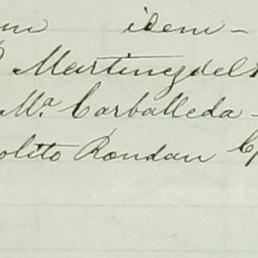 idem -
Martinez del
Mª Carballeda -
olito Rondan